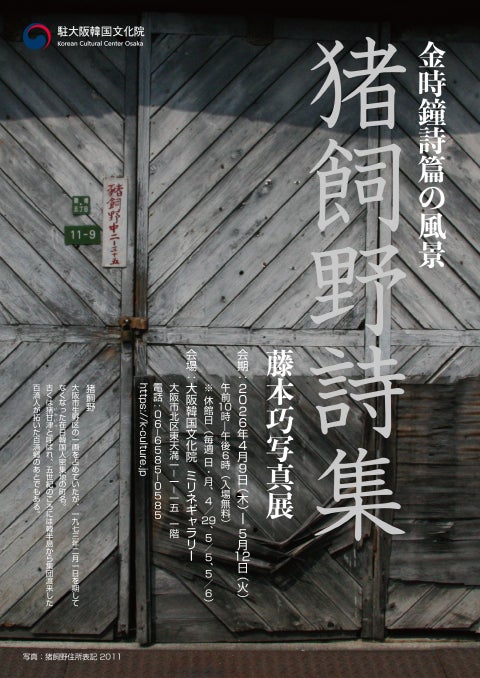 駐大阪韓国文化院
Korean Cultural Center Osaka
金時鐘詩篇の風景
猪飼野詩集
藤本巧写真展
会期：2026年4月9日(木)ー5月12日(火)
午前10時ー午後6時（入場無料）
※ 休館日（毎週日・月、4／29 5／5、5／6）
会場：大阪韓国文化院 ミリネギャラリー
大阪市北区東天満一ー一ー五 一階
電話：06-6585-0585
https://k-culture.jp
猪飼野
大阪市生野区の一画を占めていたが、一九七三年二月一日を期して
なくなった在日韓国人密集地の町名。
古くは猪甘津と呼ばれ、五世紀のころには韓半島から集団渡来した
百済人が拓いた百済郷のあとでもある。
猪飼野中二ー三十五
11-9
写真：猪飼野住所表記 2011